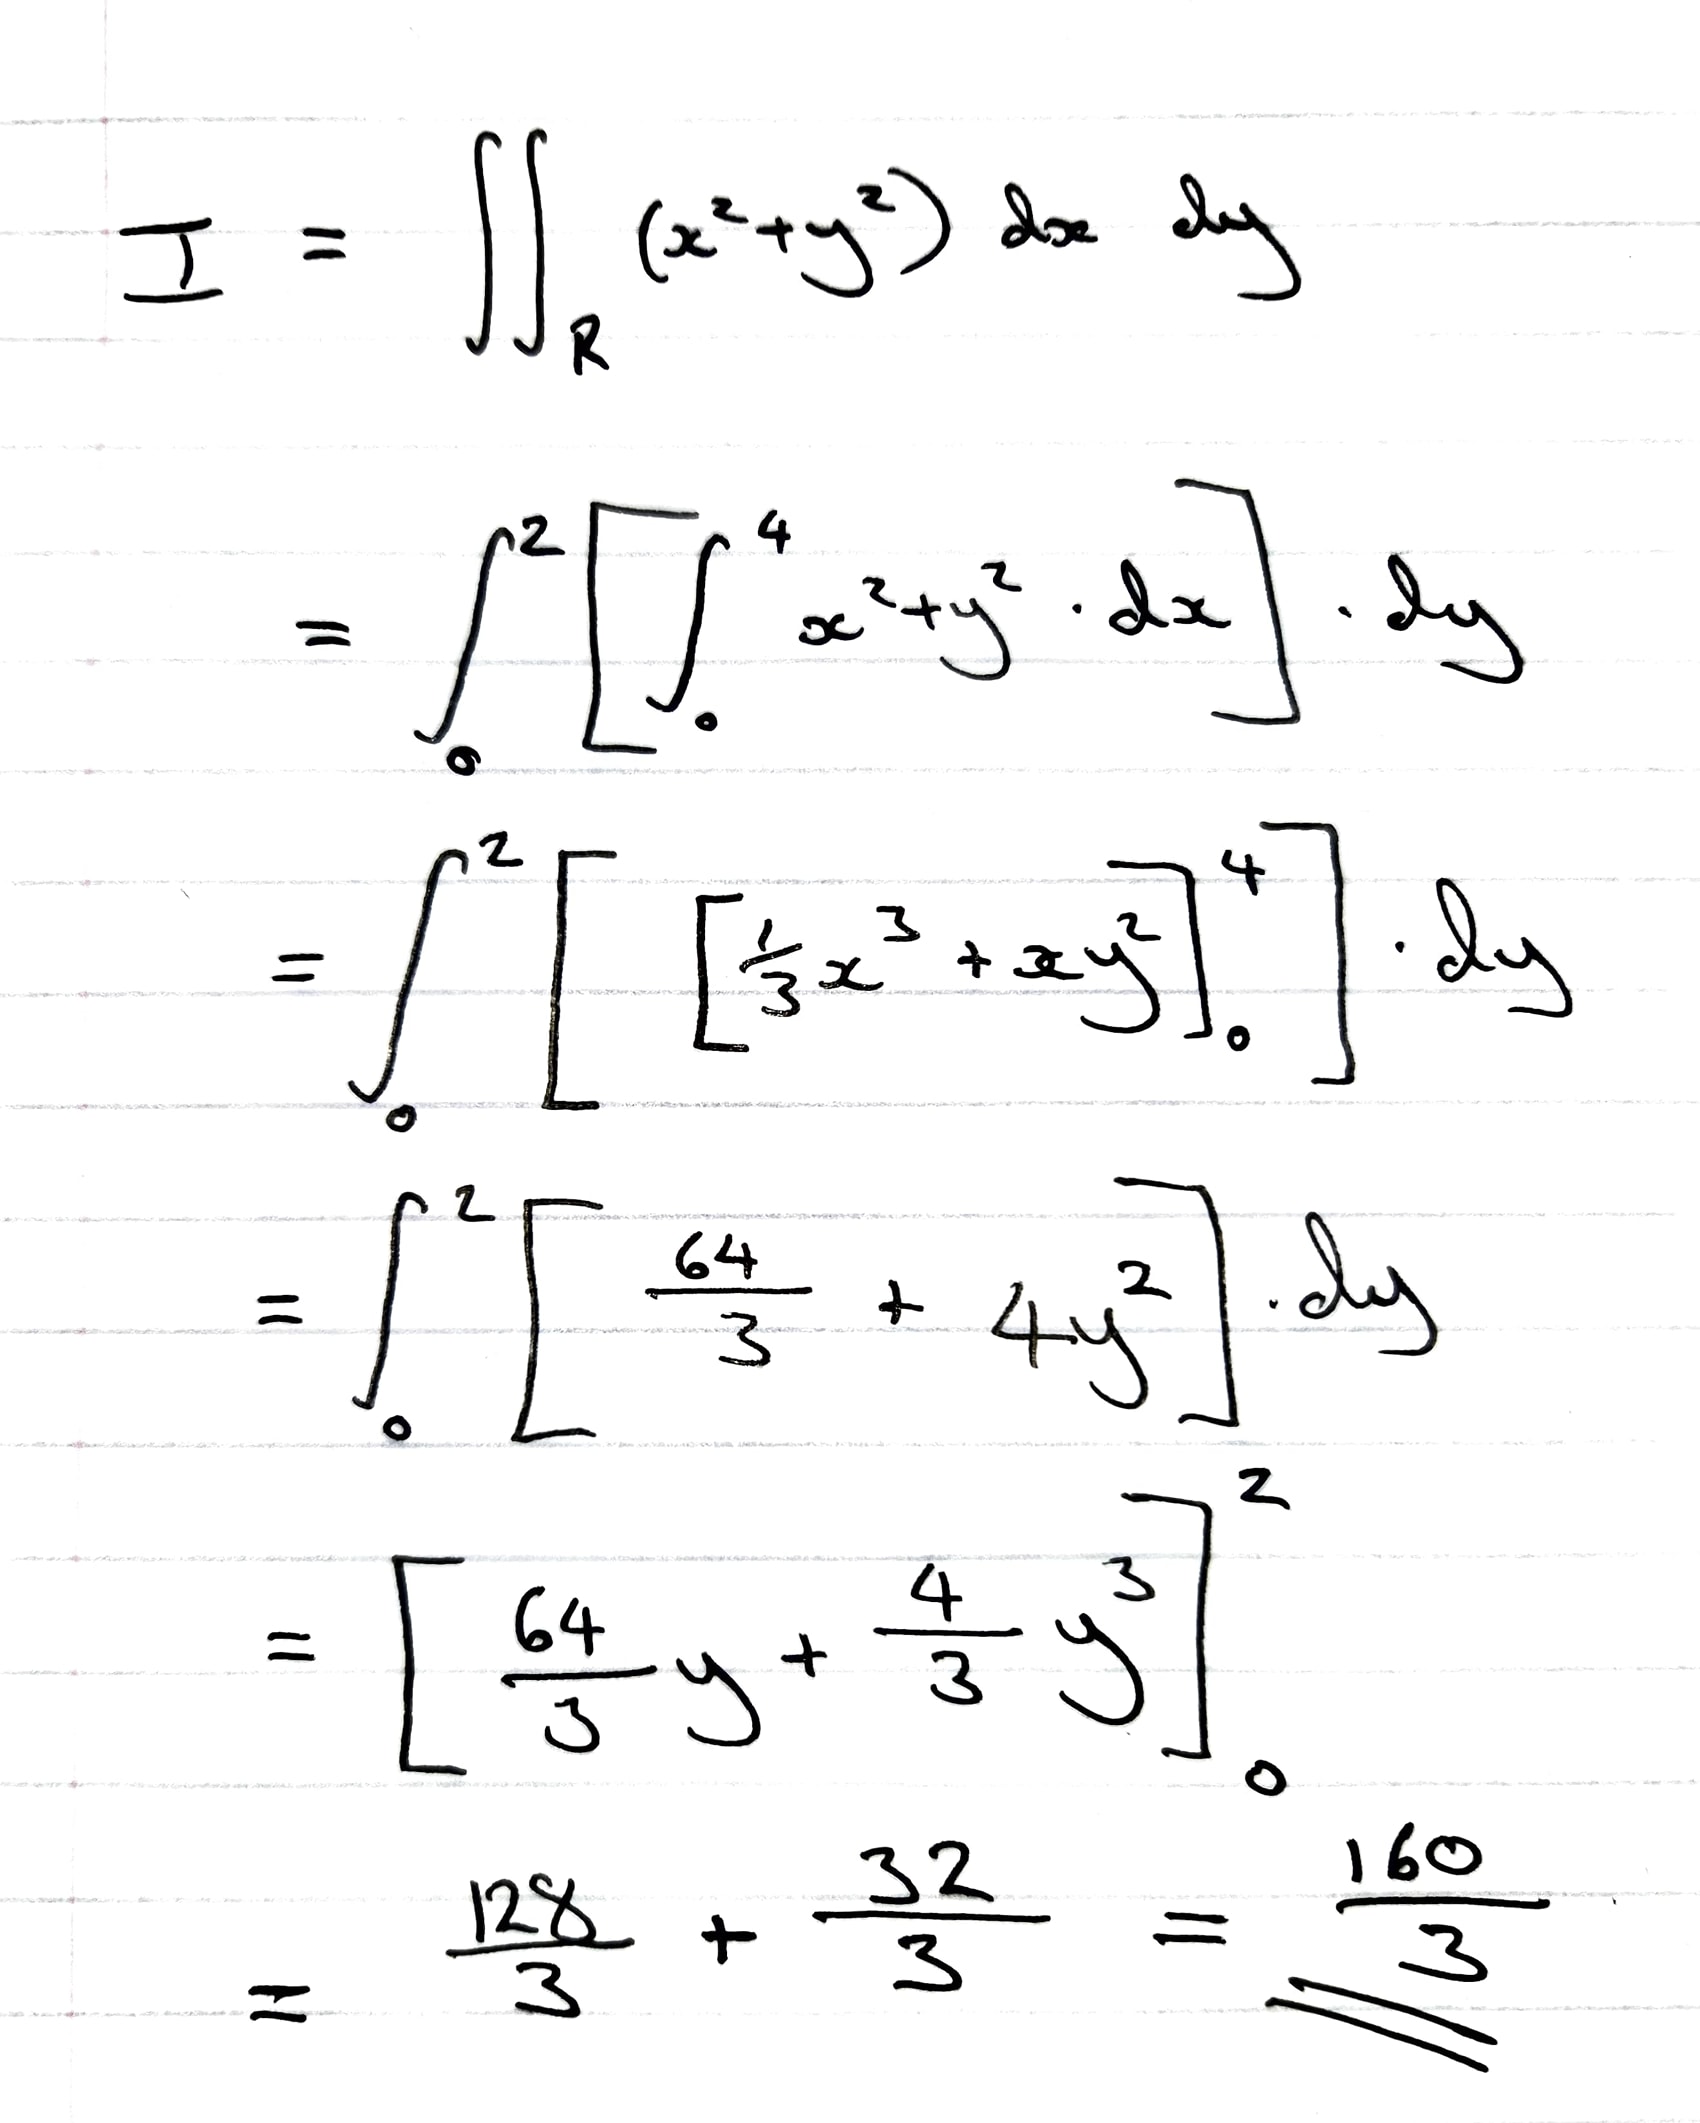 I = ∬_R (x²+y²) dx dy
= ∫₀² [∫₀⁴ x²+y² · dx] · dy
= ∫₀² [ [1/3 x³ + xy²]₀⁴ ] · dy
= ∫₀² [ 64/3 + 4y² ] · dy
= [ 64/3 y + 4/3 y³ ]₀²
= 128/3 + 32/3 = 160/3